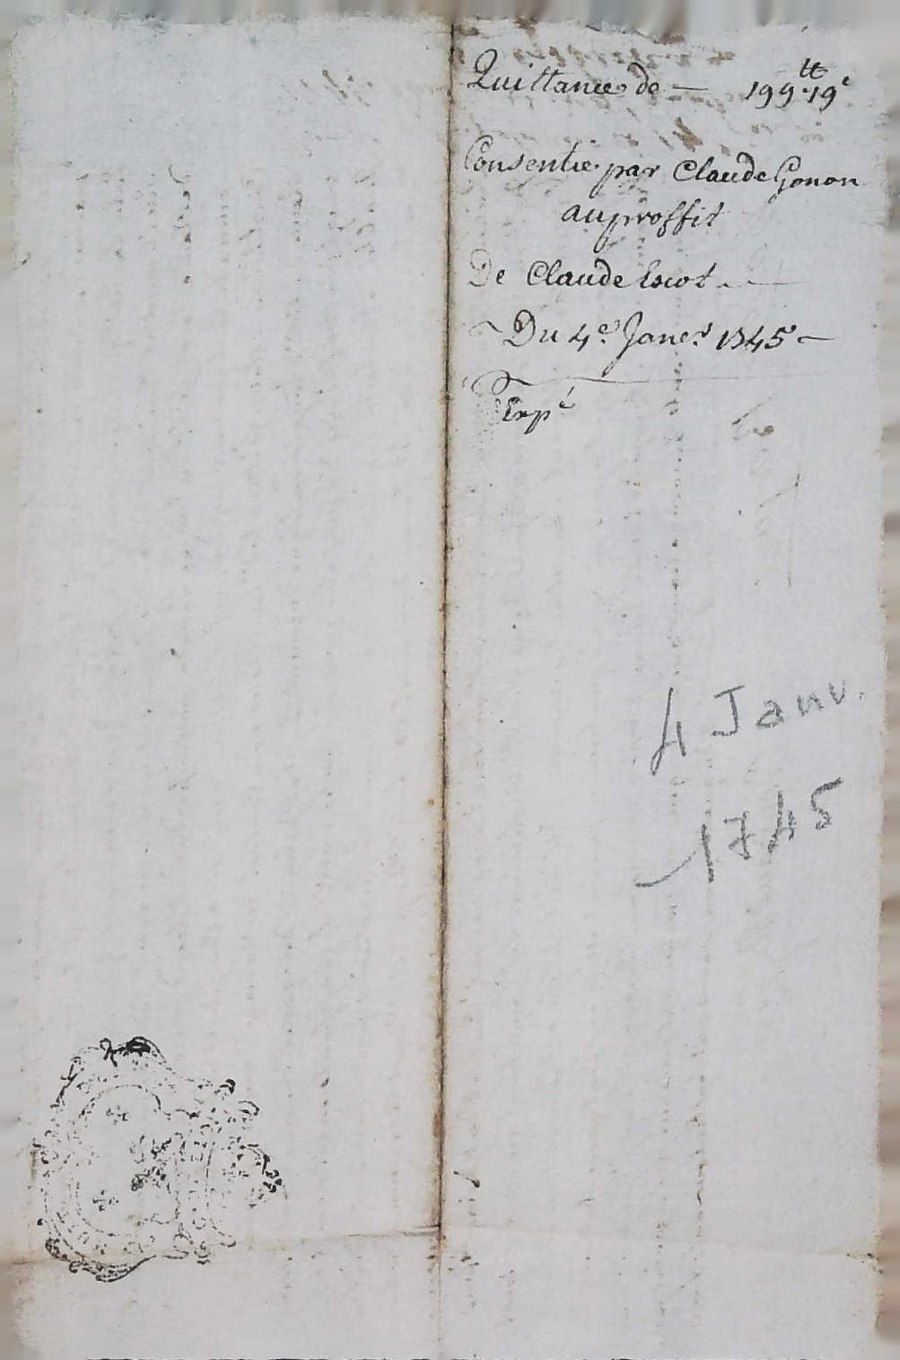 Quittance de — 199 tt 19 s
Consentie par Claude Gonon
au proffit
De Claude Escot
Du 4e Janer 1745
Expé
4 Janv.
1745